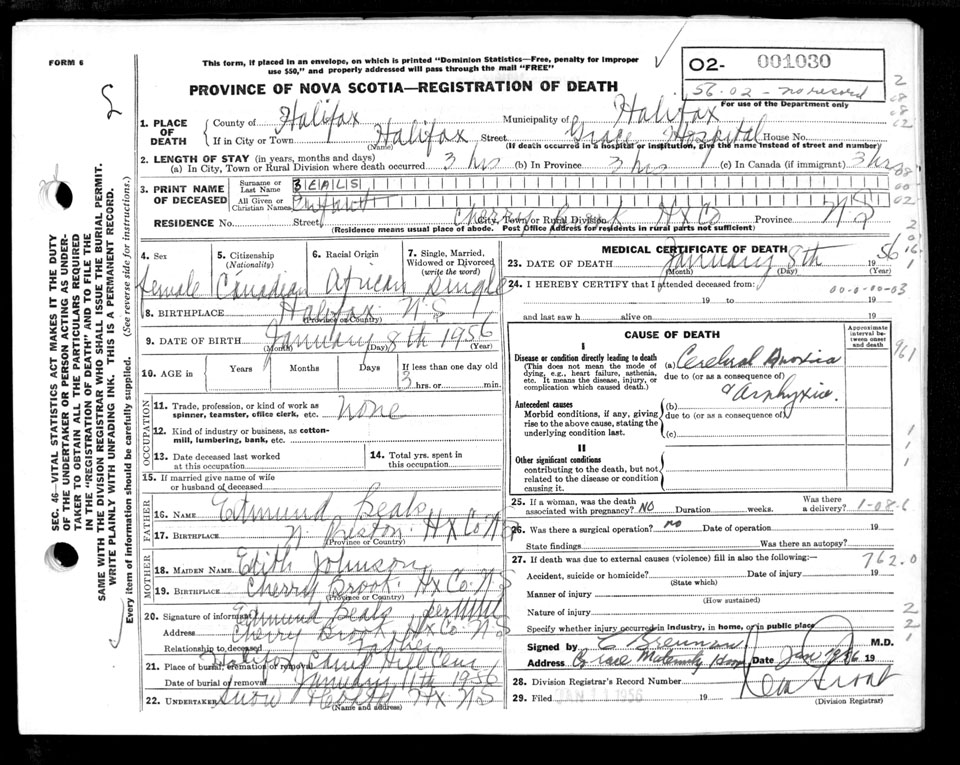 FORM 6
This form, if placed in an envelope, on which is printed "Dominion Statistics—Free, penalty for improper
use $50," and properly addressed will pass through the mail "FREE"
O2- 001030
56-02 - no record
For use of the Department only
PROVINCE OF NOVA SCOTIA—REGISTRATION OF DEATH
1. PLACE OF DEATH
County of Halifax Municipality of Halifax
If in City or Town Halifax Street Grace Hospital House No.
(Name) (If death occurred in a hospital or institution, give the name instead of street and number)
2. LENGTH OF STAY (in years, months and days)
(a) In City, Town or Rural Division where death occurred 3 hrs (b) In Province 3 hrs (c) In Canada (if immigrant) 3 hrs
3. PRINT NAME OF DECEASED
Surname or Last Name BEALS
All Given or Christian Names Infant
RESIDENCE No. Street Cherry Brook Hx Co Province N S
City, Town or Rural Division
(Residence means usual place of abode. Post Office Address for residents in rural parts not sufficient)
4. Sex female
5. Citizenship (Nationality) Canadian
6. Racial Origin African
7. Single, Married, Widowed or Divorced (write the word) Single
8. BIRTHPLACE Halifax N S
(Province or Country)
9. DATE OF BIRTH January 8th 1956
(Month) (Day) (Year)
10. AGE in Years Months Days If less than one day old
3 hrs. or min.
OCCUPATION
11. Trade, profession, or kind of work as spinner, teamster, office clerk, etc. None
12. Kind of industry or business, as cotton-mill, lumbering, bank, etc.
13. Date deceased last worked at this occupation
14. Total yrs. spent in this occupation
15. If married give name of wife or husband of deceased
FATHER
16. NAME Edmund Beals
17. BIRTHPLACE N. Preston Hx Co N S
(Province or Country)
MOTHER
18. MAIDEN NAME Edith Johnson
19. BIRTHPLACE Cherry Brook Hx Co. N S
(Province or Country)
20. Signature of informant Edmund Beals per
Address Cherry Brook Hx Co N S
Relationship to deceased Father
21. Place of burial, cremation or removal Halifax Camp Hill Cem
Date of burial or removal January 11th 1956
22. UNDERTAKER Snow Hx N S
(Name and address)
MEDICAL CERTIFICATE OF DEATH
23. DATE OF DEATH January 8th 1956
(Month) (Day) (Year)
24. I HEREBY CERTIFY that I attended deceased from:
00-0-00-03
19 to 19
and last saw h alive on 19
CAUSE OF DEATH
Approximate interval between onset and death
I
Disease or condition directly leading to death
(This does not mean the mode of dying, e.g., heart failure, asthenia, etc. It means the disease, injury, or complication which caused death.)
(a) Cerebral Anoxia
due to (or as a consequence of)
Antecedent causes
Morbid conditions, if any, giving rise to the above cause, stating the underlying condition last.
(b) Asphyxia
due to (or as a consequence of)
(c)
II
Other significant conditions
contributing to the death, but not related to the disease or condition causing it.
25. If a woman, was the death associated with pregnancy? NO Duration weeks. Was there a delivery? 1-08-6
26. Was there a surgical operation? no Date of operation 19
State findings Was there an autopsy?
27. If death was due to external causes (violence) fill in also the following:—
762.0
Accident, suicide or homicide? Date of injury 19
(State which)
Manner of injury
(How sustained)
Nature of injury
Specify whether injury occurred in industry, in home, or in public place
Signed by C Brennan M.D.
Address Grace Maternity Hosp Date Jan 1956 19
28. Division Registrar's Record Number
29. Filed JAN 11 1956 19
(Division Registrar)
SEC. 46—VITAL STATISTICS ACT MAKES IT THE DUTY
OF THE UNDERTAKER OR PERSON ACTING AS UNDER-
TAKER TO OBTAIN ALL THE PARTICULARS REQUIRED
IN THE "REGISTRATION OF DEATH" AND TO FILE THE
SAME WITH THE DIVISION REGISTRAR WHO SHALL ISSUE THE BURIAL PERMIT.
WRITE PLAINLY WITH UNFADING INK. THIS IS A PERMANENT RECORD.
Every item of information should be carefully supplied. (See reverse side for instructions.)